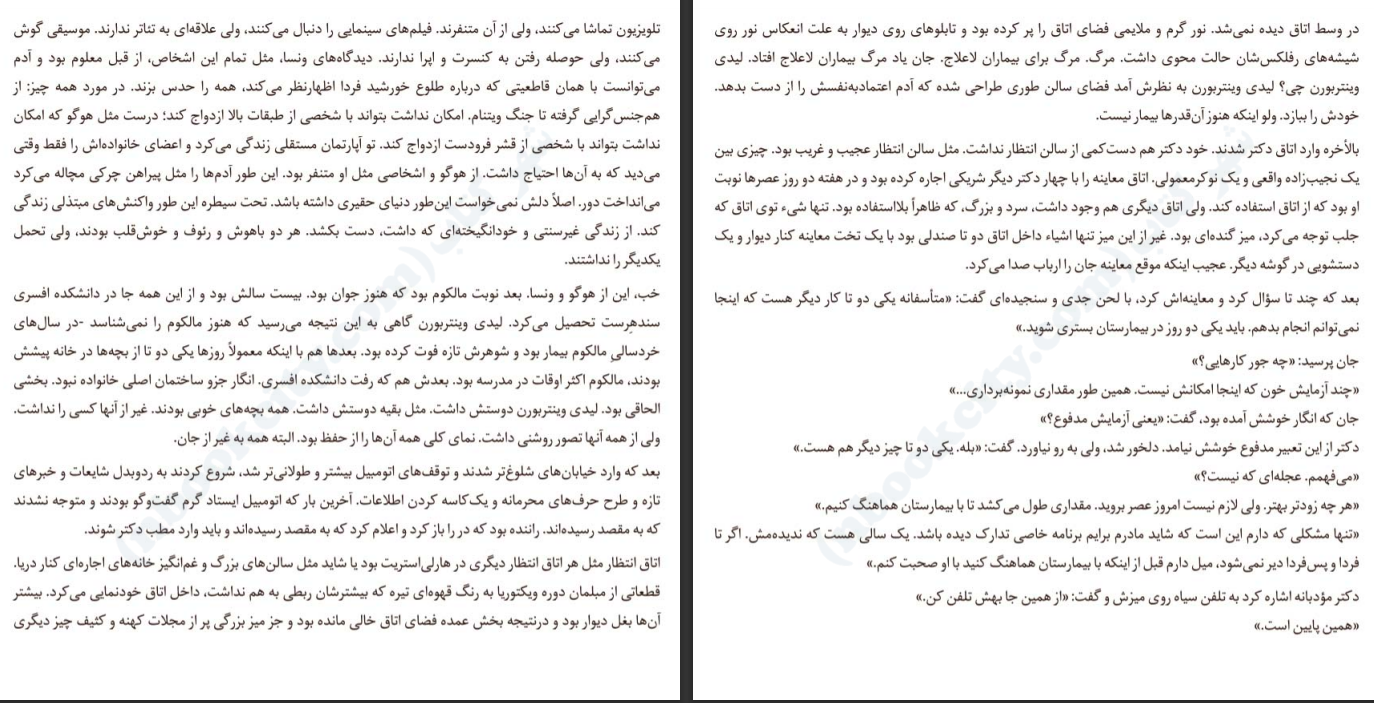 تلویزیون تماشا می‌کنند، ولی از آن متنفرند. فیلم‌های سینمایی را دنبال می‌کنند، ولی علاقه‌ای به تئاتر ندارند. موسیقی گوش
می‌کنند، ولی حوصله رفتن به کنسرت و اپرا ندارند. دیدگاه‌های ونسا، مثل تمام این اشخاص، از قبل معلوم بود و آدم
می‌توانست با همان قاطعیتی که درباره طلوع خورشید فردا اظهارنظر می‌کند، همه را حدس بزند. در مورد همه چیز: از
هم‌جنس‌گرایی گرفته تا جنگ ویتنام. امکان نداشت بتواند با شخصی از طبقات بالا ازدواج کند؛ درست مثل هوگو که امکان
نداشت بتواند با شخصی از قشر فرودست ازدواج کند. تو آپارتمان مستقلی زندگی می‌کرد و اعضای خانواده‌اش را فقط وقتی
می‌دید که به آن‌ها احتیاج داشت. از هوگو و اشخاصی مثل او متنفر بود. این طور آدم‌ها را مثل پیراهن چرکی مچاله می‌کرد
می‌انداخت دور. اصلاً دلش نمی‌خواست این‌طور دنیای حقیری داشته باشد. تحت سیطره این طور واکنش‌های مبتذلی زندگی
کند. از زندگی غیرسنتی و خودانگیخته‌ای که داشت، دست بکشد. هر دو باهوش و رئوف و خوش‌قلب بودند، ولی تحمل
یکدیگر را نداشتند.
خب، این از هوگو و ونسا. بعد نوبت مالکوم بود که هنوز جوان بود. بیست سالش بود و از این همه جا در دانشکده افسری
سندهرست تحصیل می‌کرد. لیدی وینتربورن گاهی به این نتیجه می‌رسید که هنوز مالکوم را نمی‌شناسد -در سال‌های
خردسالیِ مالکوم بیمار بود و شوهرش تازه فوت کرده بود. بعدها هم با اینکه معمولاً روزها یکی دو تا از بچه‌ها در خانه پیشش
بودند، مالکوم اکثر اوقات در مدرسه بود. بعدش هم که رفت دانشکده افسری. انگار جزو ساختمان اصلی خانواده نبود. بخشی
الحاقی بود. لیدی وینتربورن دوستش داشت. مثل بقیه دوستش داشت. همه بچه‌های خوبی بودند. غیر از آنها کسی را نداشت.
ولی از همه آنها تصور روشنی داشت. نمای کلی همه آن‌ها را از حفظ بود. البته همه به غیر از جان.
بعد که وارد خیابان‌های شلوغ‌تر شدند و توقف‌های اتومبیل بیشتر و طولانی‌تر شد، شروع کردند به ردوبدل شایعات و خبرهای
تازه و طرح حرف‌های محرمانه و یک‌کاسه کردن اطلاعات. آخرین بار که اتومبیل ایستاد گرم گفت‌وگو بودند و متوجه نشدند
که به مقصد رسیده‌اند. راننده بود که در را باز کرد و اعلام کرد که به مقصد رسیده‌اند و باید وارد مطب دکتر شوند.
اتاق انتظار مثل هر اتاق انتظار دیگری در هارلی‌استریت بود یا شاید مثل سالن‌های بزرگ و غم‌انگیز خانه‌های اجاره‌ای کنار دریا.
قطعاتی از مبلمان دوره ویکتوریا به رنگ قهوه‌ای تیره که بیشترشان ربطی به هم نداشت، داخل اتاق خودنمایی می‌کرد. بیشتر
آن‌ها بغل دیوار بود و درنتیجه بخش عمده فضای اتاق خالی مانده بود و جز میز بزرگی پر از مجلات کهنه و کثیف چیز دیگری
شهر کتاب (nbookcity.com)
در وسط اتاق دیده نمی‌شد. نور گرم و ملایمی فضای اتاق را پر کرده بود و تابلوهای روی دیوار به علت انعکاس نور روی
شیشه‌های رفلکس‌شان حالت محوی داشت. مرگ. مرگ برای بیماران لاعلاج. جان یاد مرگ بیماران لاعلاج افتاد. لیدی
وینتربورن چی؟ لیدی وینتربورن به نظرش آمد فضای سالن طوری طراحی شده که آدم اعتمادبه‌نفسش را از دست بدهد.
خودش را ببازد. ولو اینکه هنوز آن‌قدرها بیمار نیست.
بالأخره وارد اتاق دکتر شدند. خود دکتر هم دست‌کمی از سالن انتظار نداشت. مثل سالن انتظار عجیب و غریب بود. چیزی بین
یک نجیب‌زاده واقعی و یک نوکرمعمولی. اتاق معاینه را با چهار دکتر دیگر شریکی اجاره کرده بود و در هفته دو روز عصرها نوبت
او بود که از اتاق استفاده کند. ولی اتاق دیگری هم وجود داشت، سرد و بزرگ، که ظاهراً بلااستفاده بود. تنها شیء توی اتاق که
جلب توجه می‌کرد، میز گنده‌ای بود. غیر از این میز تنها اشیاء داخل اتاق دو تا صندلی بود با یک تخت معاینه کنار دیوار و یک
دستشویی در گوشه دیگر. عجیب اینکه موقع معاینه جان را ارباب صدا می‌کرد.
بعد که چند تا سؤال کرد و معاینه‌اش کرد، با لحن جدی و سنجیده‌ای گفت: «متأسفانه یکی دو تا کار دیگر هست که اینجا
نمی‌توانم انجام بدهم. باید یکی دو روز در بیمارستان بستری شوید.»
جان پرسید: «چه جور کارهایی؟»
«چند آزمایش خون که اینجا امکانش نیست. همین طور مقداری نمونه‌برداری...»
جان که انگار خوشش آمده بود، گفت: «یعنی آزمایش مدفوع؟»
دکتر از این تعبیر مدفوع خوشش نیامد. دلخور شد، ولی به رو نیاورد. گفت: «بله. یکی دو تا چیز دیگر هم هست.»
«می‌فهمم. عجله‌ای که نیست؟»
«هر چه زودتر بهتر. ولی لازم نیست امروز عصر بروید. مقداری طول می‌کشد تا با بیمارستان هماهنگ کنیم.»
«تنها مشکلی که دارم این است که شاید مادرم برایم برنامه خاصی تدارک دیده باشد. یک سالی هست که ندیده‌مش. اگر تا
فردا و پس‌فردا دیر نمی‌شود، میل دارم قبل از اینکه با بیمارستان هماهنگ کنید با او صحبت کنم.»
دکتر مؤدبانه اشاره کرد به تلفن سیاه روی میزش و گفت: «از همین جا بهش تلفن کن.»
«همین پایین است.»
شهر کتاب (nbookcity.com)